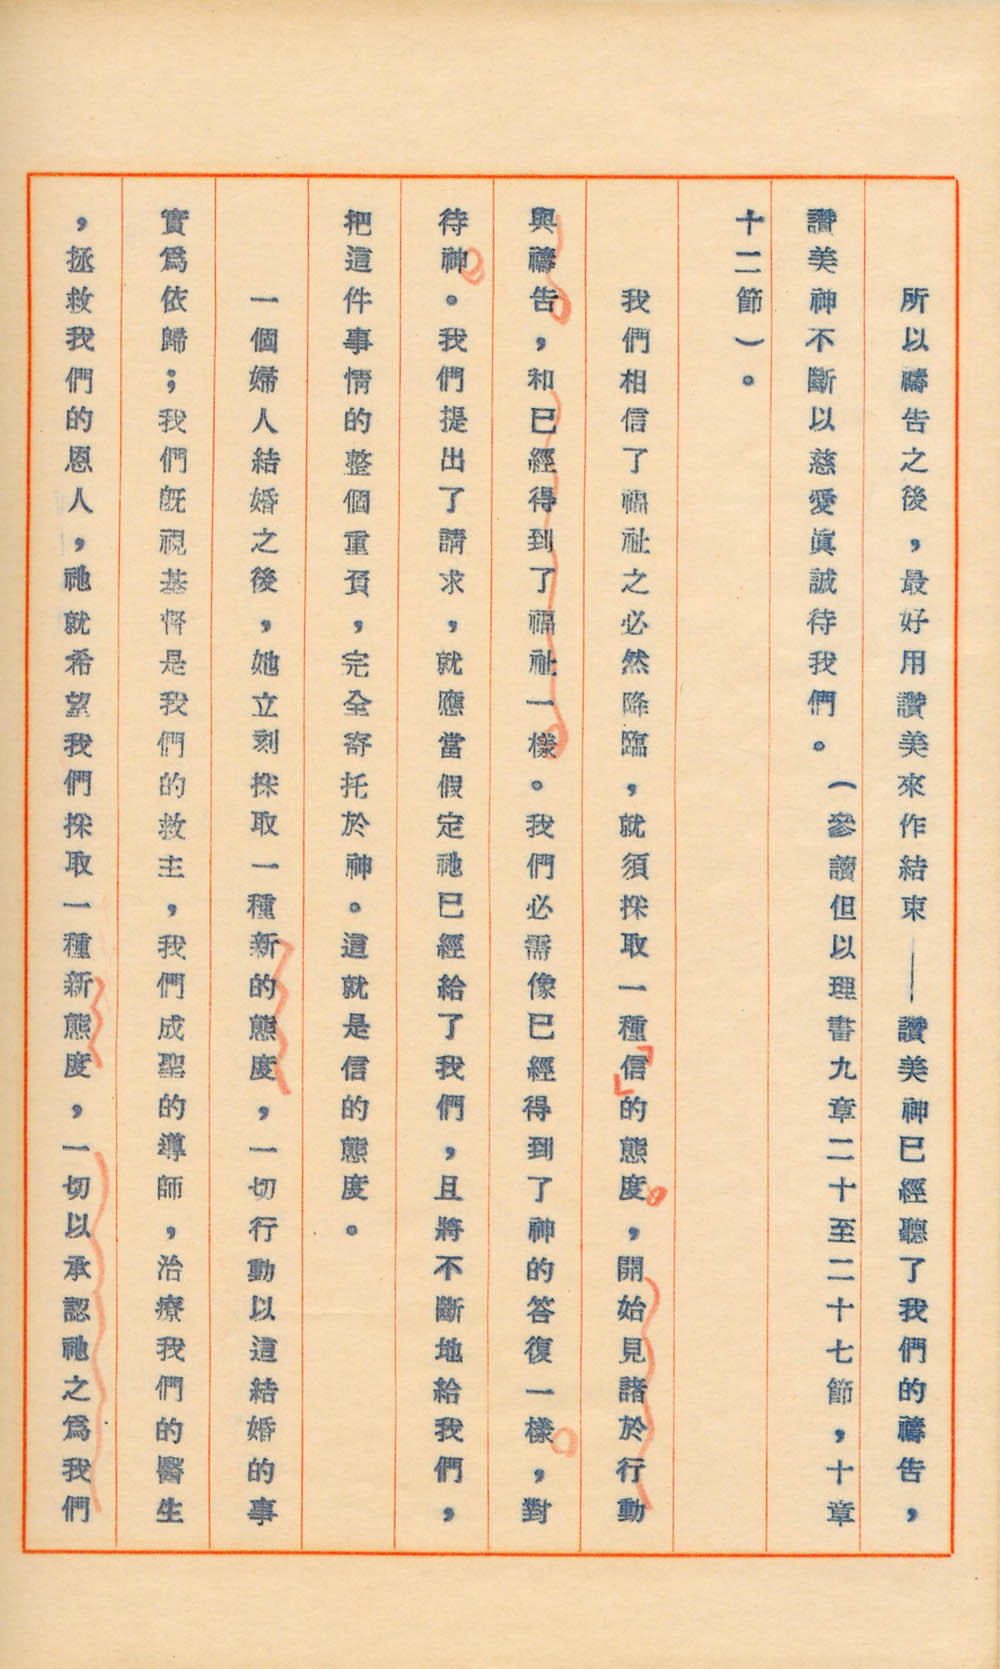 所以禱告之後，最好用讚美來作結束——讚美神已經聽了我們的禱告，
讚美神不斷以慈愛眞誠待我們。（參讀但以理書九章二十至二十七節，十章
十二節）。
我們相信了福祉之必然降臨，就須採取一種「信」的態度，開始見諸於行動
與禱告，和已經得到了福祉一樣。我們必需像已經得到了神的答復一樣，對
待神。我們提出了請求，就應當假定祂已經給了我們，且將不斷地給我們，
把這件事情的整個重負，完全寄托於神。這就是信的態度。
一個婦人結婚之後，她立刻採取一種新的態度，一切行動以這結婚的事
實爲依歸；我們旣視基督是我們的救主，我們成聖的導師，治療我們的醫生
，拯救我們的恩人，祂就希望我們採取一種新態度，一切以承認祂之爲我們